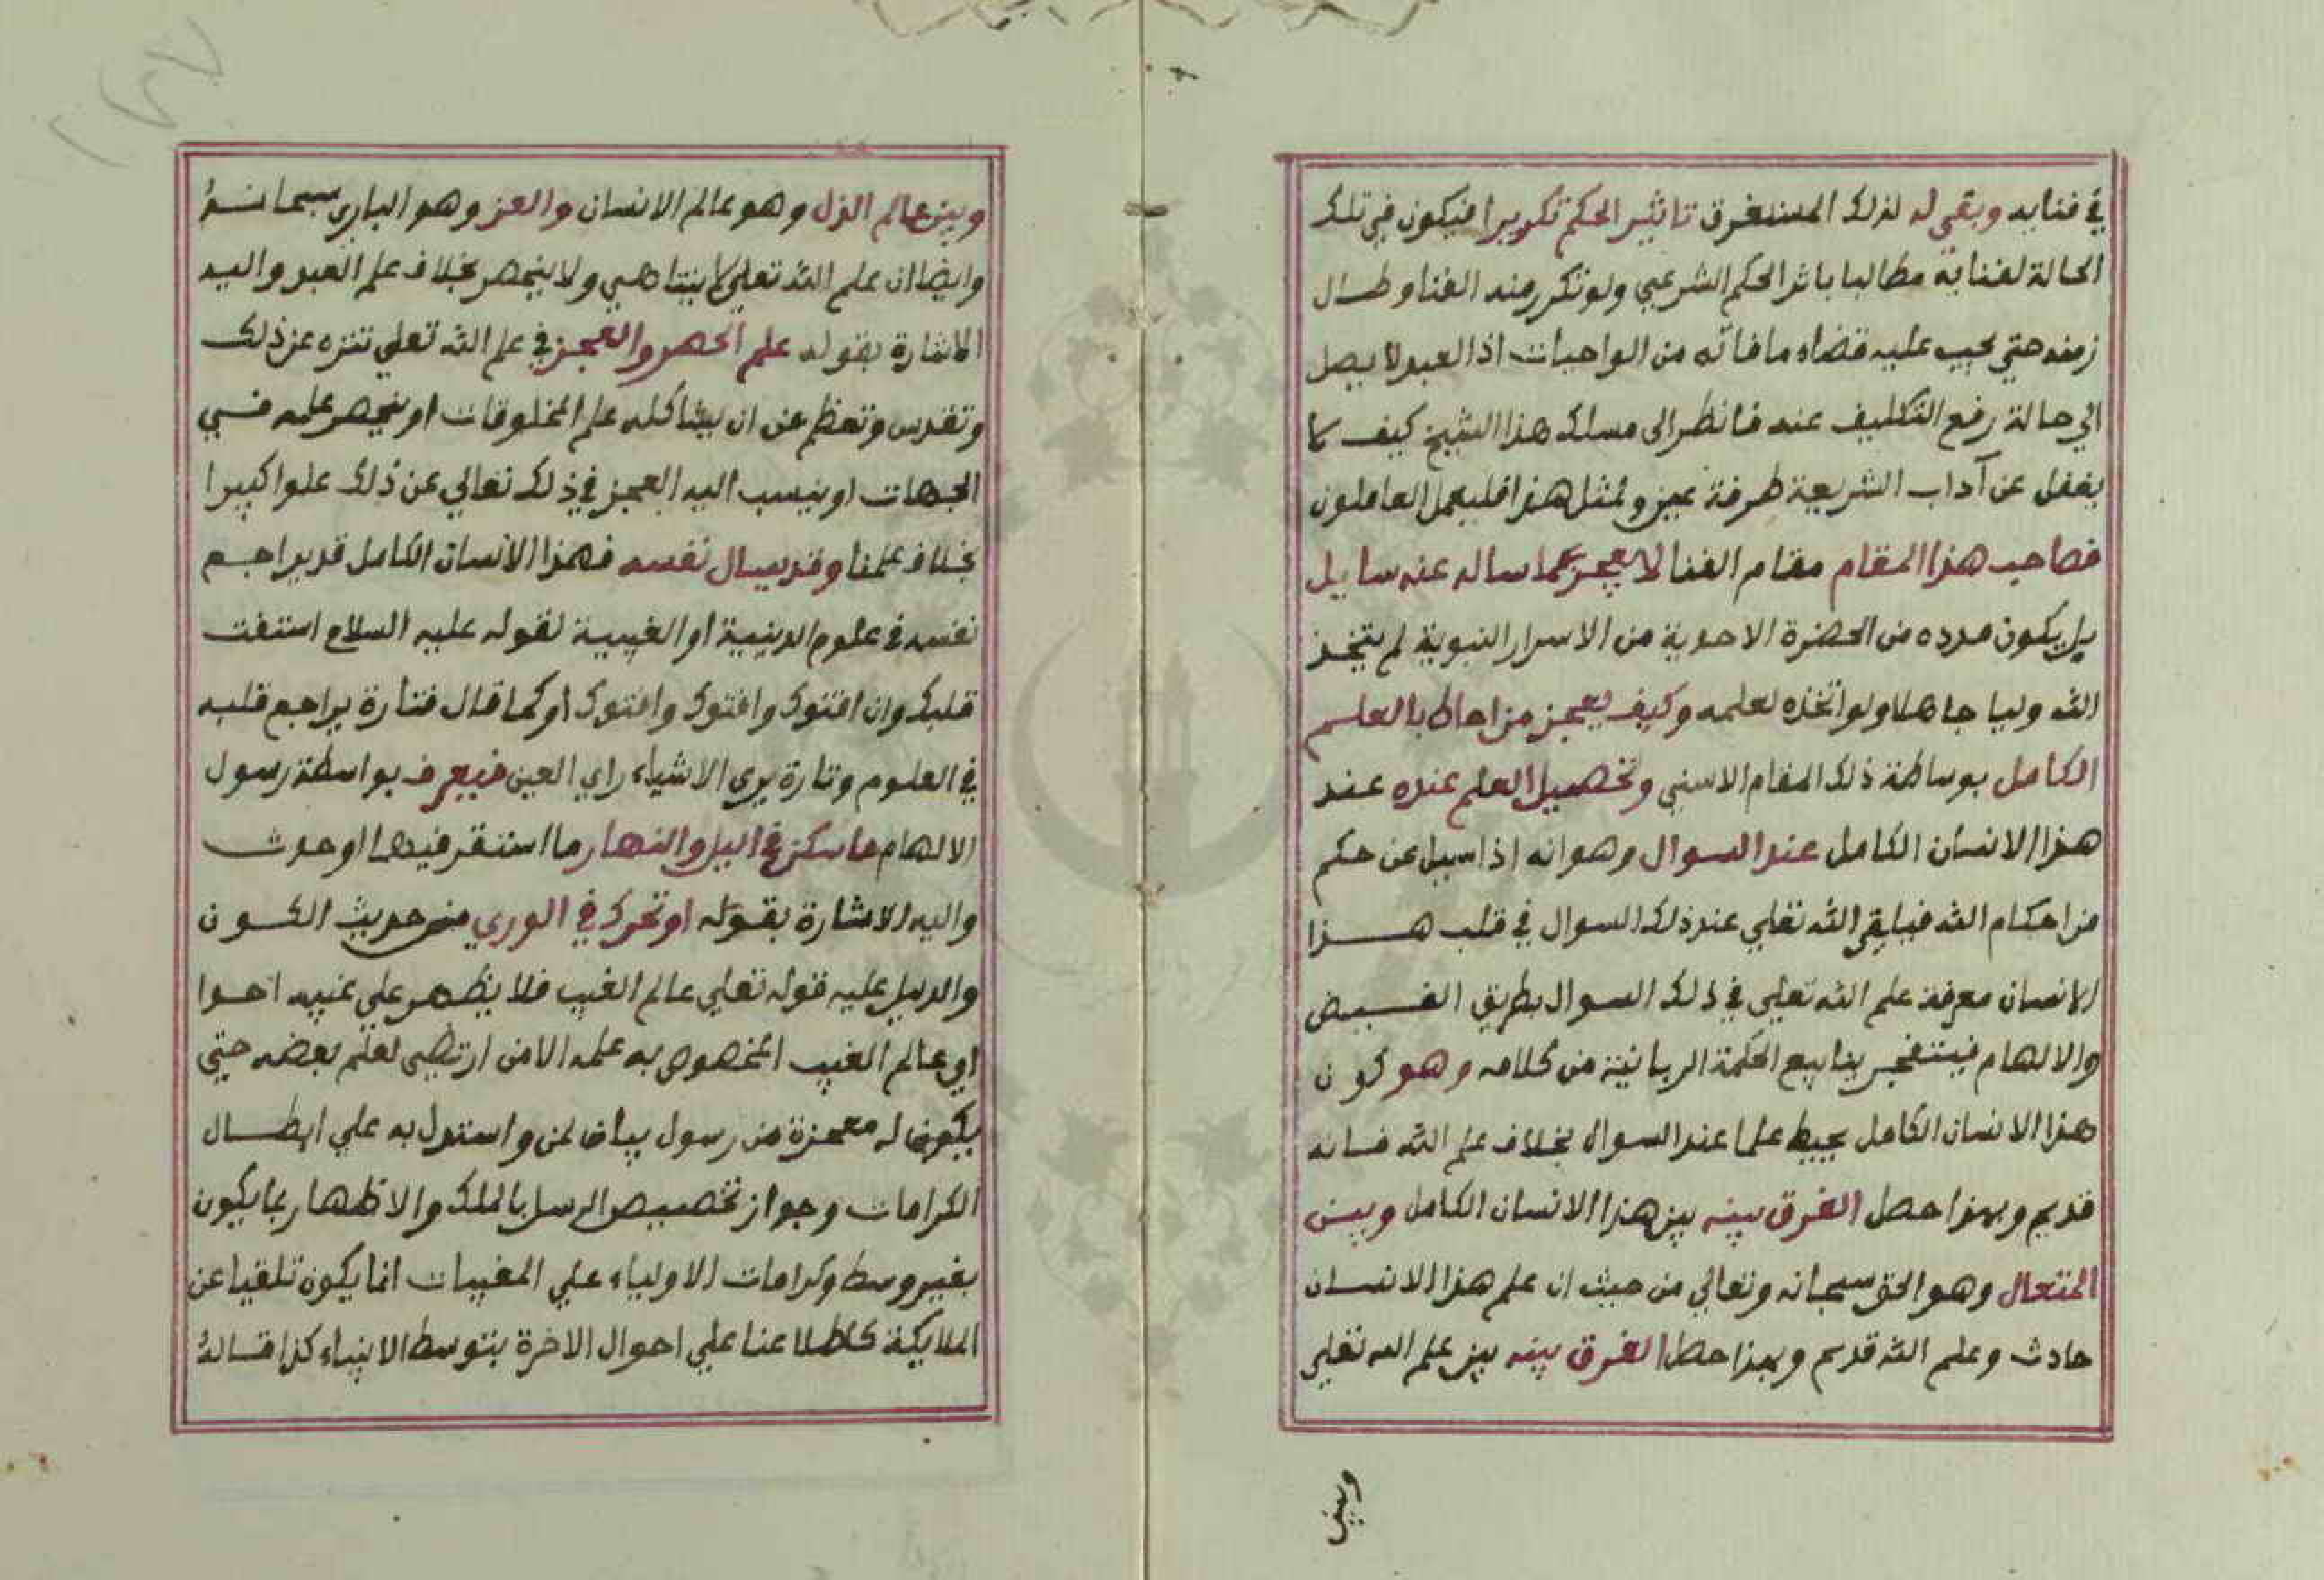 في فنايه وبقي له لذلك المستغرق تاثير الحكم تكريرا فيكون في تلك
الحالة لفنايه مطالبا باثر الحكم الشرعي ولو تكرر منه الفنا وطال
زمنه حتي يجب عليه قضاء ما فاته من الواجبات اذ العبد لا يصل
الي حالة رفع التكليف عنه فانظر الى مسلك هذا الشيخ كيف لا
يغفل عن آداب الشريعة طرفة عين ولمثل هذا فليعمل العاملون
فصاحب هذا المقام مقام الفنا لا يعجز عما ساله عنه سايل
بل يكون مدده من الحضرة الاحدية من الاسرار النبوية لم يتخذ
الله وليا جاهلا ولو اتخذه لعلمه وكيف يعجز من احاط بالعلم
الكامل بوساطة ذلك المقام الاسني وتحصيل العلم عنده عند
هذا الانسان الكامل عند السوال وهو انه اذا سيل عن حكم
من احكام الله فيلقي الله تعلي عند ذلك السوال في قلب هذا
الانسان معرفة علم الله تعلي في ذلك السوال بطريق الفيض
والالهام فيتفجر ينابيع الحكمة الربانية من كلامه وهو كون
هذا الانسان الكامل يحيط علما عند السوال بخلاف علم الله فانه
قديم وبهذا حصل الفرق بينه بين هذا الانسان الكامل وبين
المتعال وهو الحق سبحانه وتعالي من حيث ان علم هذا الانسان
حادث وعلم الله قديم وبهذا حصل الفرق بينه بين علم الله تعلي
وبين
وبين عالم الذل وهو عالم الانسان والعز وهو الباري سبحانه
وايضا ان علم الله تعلي لا يتناهي ولا ينحصر بخلاف علم العبد واليه
الاشارة بقوله علم الحصر والعجز في علم الله تعلي تنزه عن ذلك
وتقدس وتعظم عن ان يشاكله علم المخلوقات او ينحصر علمه في
الجهات او ينسب اليه العجز في ذلك تعالي عن ذلك علوا كبيرا
بخلاف علمنا وقد يسال نفسه فهذا الانسان الكامل قد يراجع
نفسه في علوم الدينية او الغيبية لقوله عليه السلام استفت
قلبك وان افتوك وافتوك وافتوك او كما قال فتارة يراجع قلبه
في العلوم وتارة يرى الاشياء راي العين فيعرف بواسطة رسول
الالهام ما سكن في اليل والنهار ما استقر فيهما او حدث
واليه الاشارة بقوله او تحرك في الوري من حديث الكون
والدليل عليه قوله تعلي عالم الغيب فلا يظهر علي غيبه احدا
اي عالم الغيب المخصوص به علمه الا من ارتضي لعلم بعضه حتي
يكون له معجزة من رسول بيان لمن واستدل به علي ابطال
الكرامات وجواز تخصيص الرسل بالملك والاظهار بما يكون
بغير وسط وكرامات الاولياء علي المغيبات انما يكون تلقيا عن
الملايكة كاطلاعنا علي احوال الاخرة بتوسط الانبياء كذا قاله